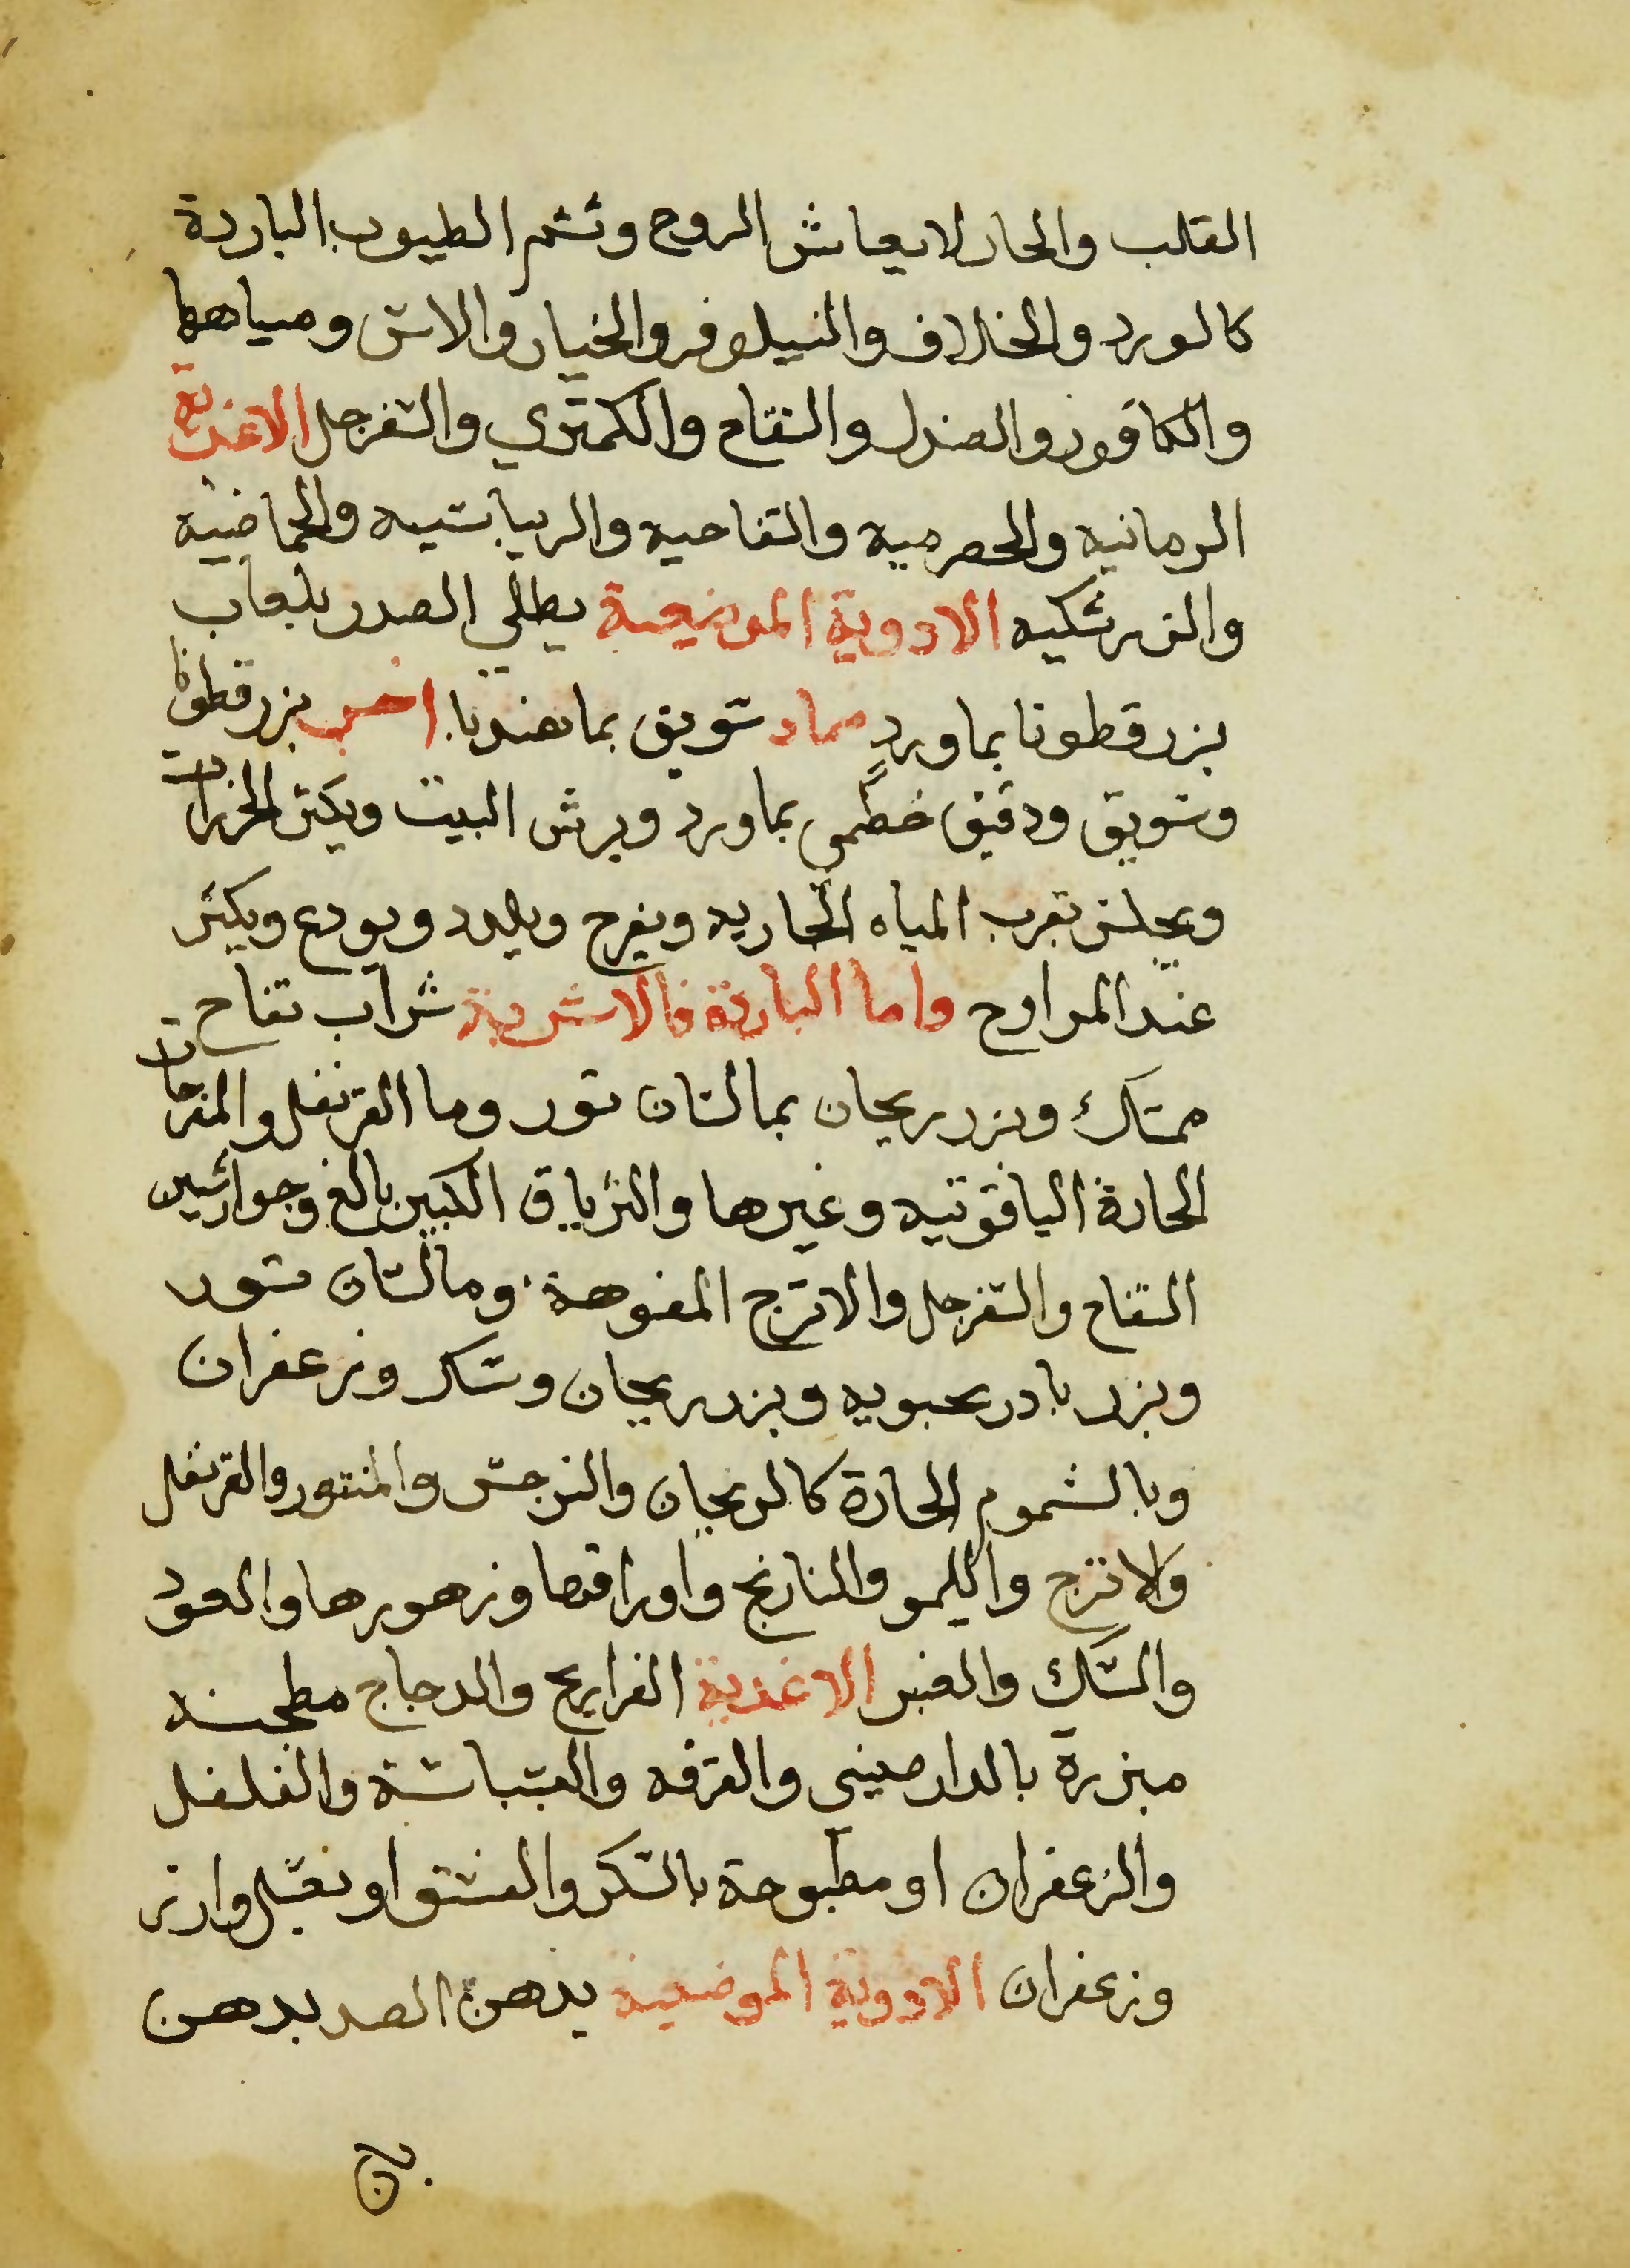 القلب والحار لانعاش الروح وتشم الطيوب الباردة
كالورد والخلاف والنيلوفر والخيار والاس ومياهها
والكافور والصندل والتفاح والكمثري والسفرجل الاغذية
الرمانيه والحصرميه والتفاحيه والريباسيه والحماضيه
والزرشكيه الادوية الموضعية يطلي الصدر بلعاب
بزر قطونا بماورد ضماد سويق بما هندبا اخر بزر قطونا
وسويق ودقيق خطمي بماورد ويرش البيت ويكثر
ويجلس بقرب المياه الجاريه ويفرح ويلدد ويودع ويكثر
عند المراوح واما الباردة فالاشربة شراب تفاح
ممسك وبزر ريحان بما لسان تور وما القرنفل والمفرحات
الحارة الياقوتيه وغيرها والترياق الكبير بالغ وجوارشين
التفاح والسفرجل والاترج المفوهة وما لسان تور
وبزر بادرنجبويه وبزر ريحان وسكر وزعفران
وبالشموم الحارة كالريحان والنرجس والمنتور والقرنفل
ولاترج والليمو والنارنج واوراقها وزهورها والعود
والمسك والعنبر الاغذية الفراريج والدجاج مطجنه
مبزرة بالدارصيني والقرفه والبسباسة والفلفل
والزعفران او مطبوخة بالسكر والفستق او بعسل وارز
وزعفران الادوية الموضعية يدهن الصد بدهن